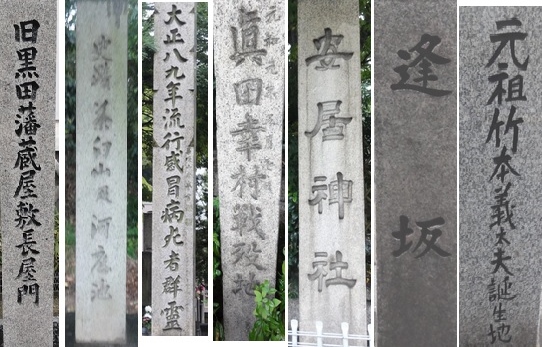 旧黒田藩蔵屋敷長屋門
史蹟茶臼山及河底池
大正八九年流行感冒病死者群霊
眞田幸村戰歿地
安居神社
逢坂
元祖竹本義太夫誕生地